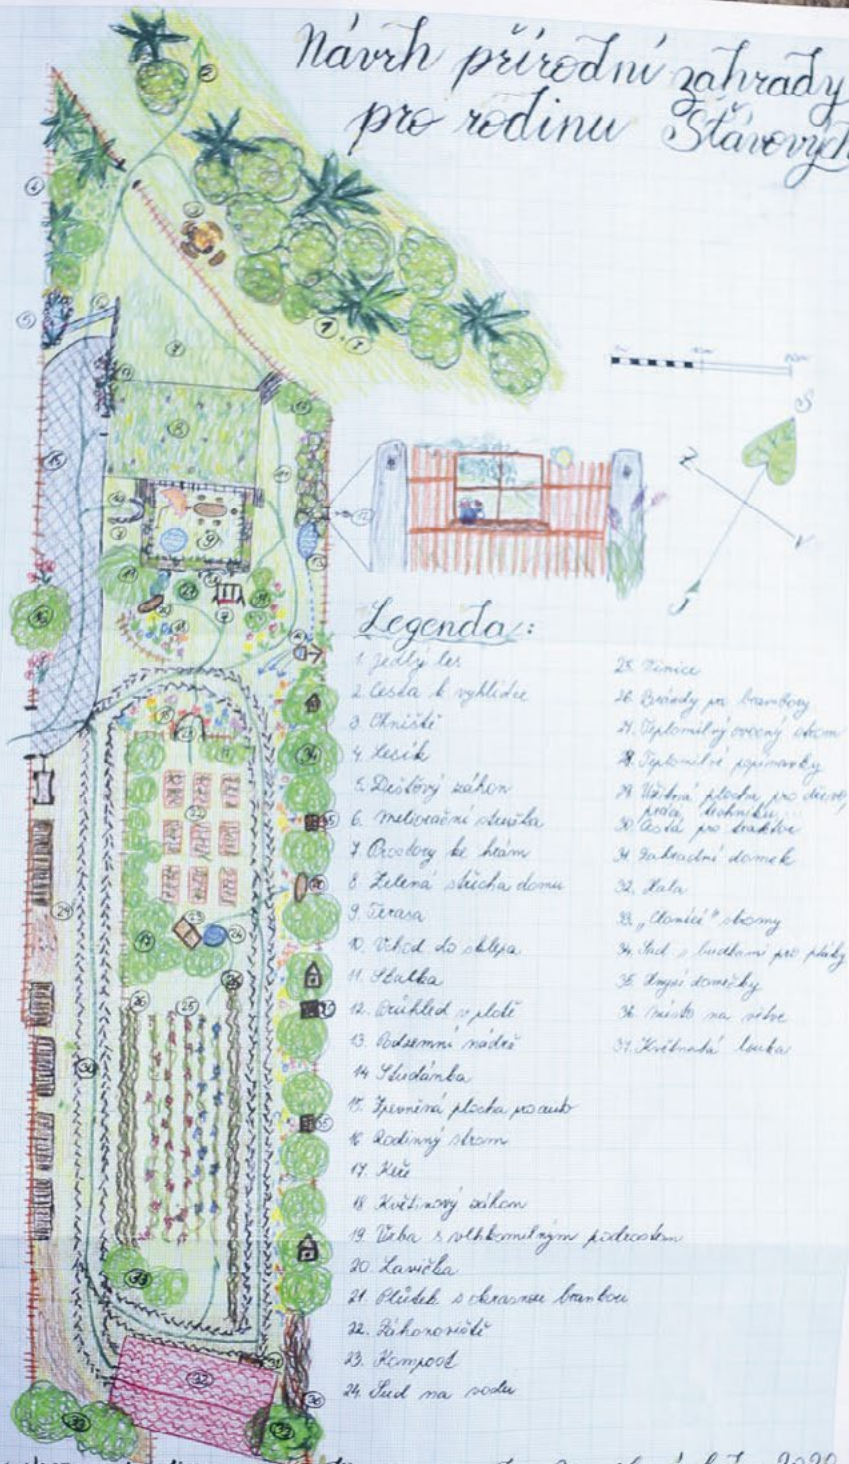 Návrh přírodní zahrady
pro rodinu Šťávových
Legenda:
1. Jedlý les
2. Cesta k vyhlídce
3. Ohniště
4. Lesík
5. Dešťový záhon
6. Meliorační stružka
7. Prostory ke hrám
8. Zelená střecha domu
9. Terasa
10. Vchod do sklepa
11. Skalka
12. Průhled v plotě
13. Podzemní nádrž
14. Studánka
15. Zpevněná plocha pro auto
16. Rodinný strom
17. Keře
18. Květinový záhon
19. Vrba s vlhkomilným podrostem
20. Lavička
21. Plůtek s okrasnou brankou
22. Záhonoviště
23. Kompost
24. Sud na vodu
25. Vinice
26. Brázdy pro brambory
27. Teplomilný ovocný strom
28. Teplomilné popínavky
29. Užitná plocha pro dřevo,
techniku...
30. Cesta pro traktor
31. Zahradní domek
32. Hala
33. "Clonící" stromy
34. Sad s budkami pro ptáky
35. Hmyzí domečky
36. Místo na větve
37. Květnatá louka
S
Z
V
J
2020